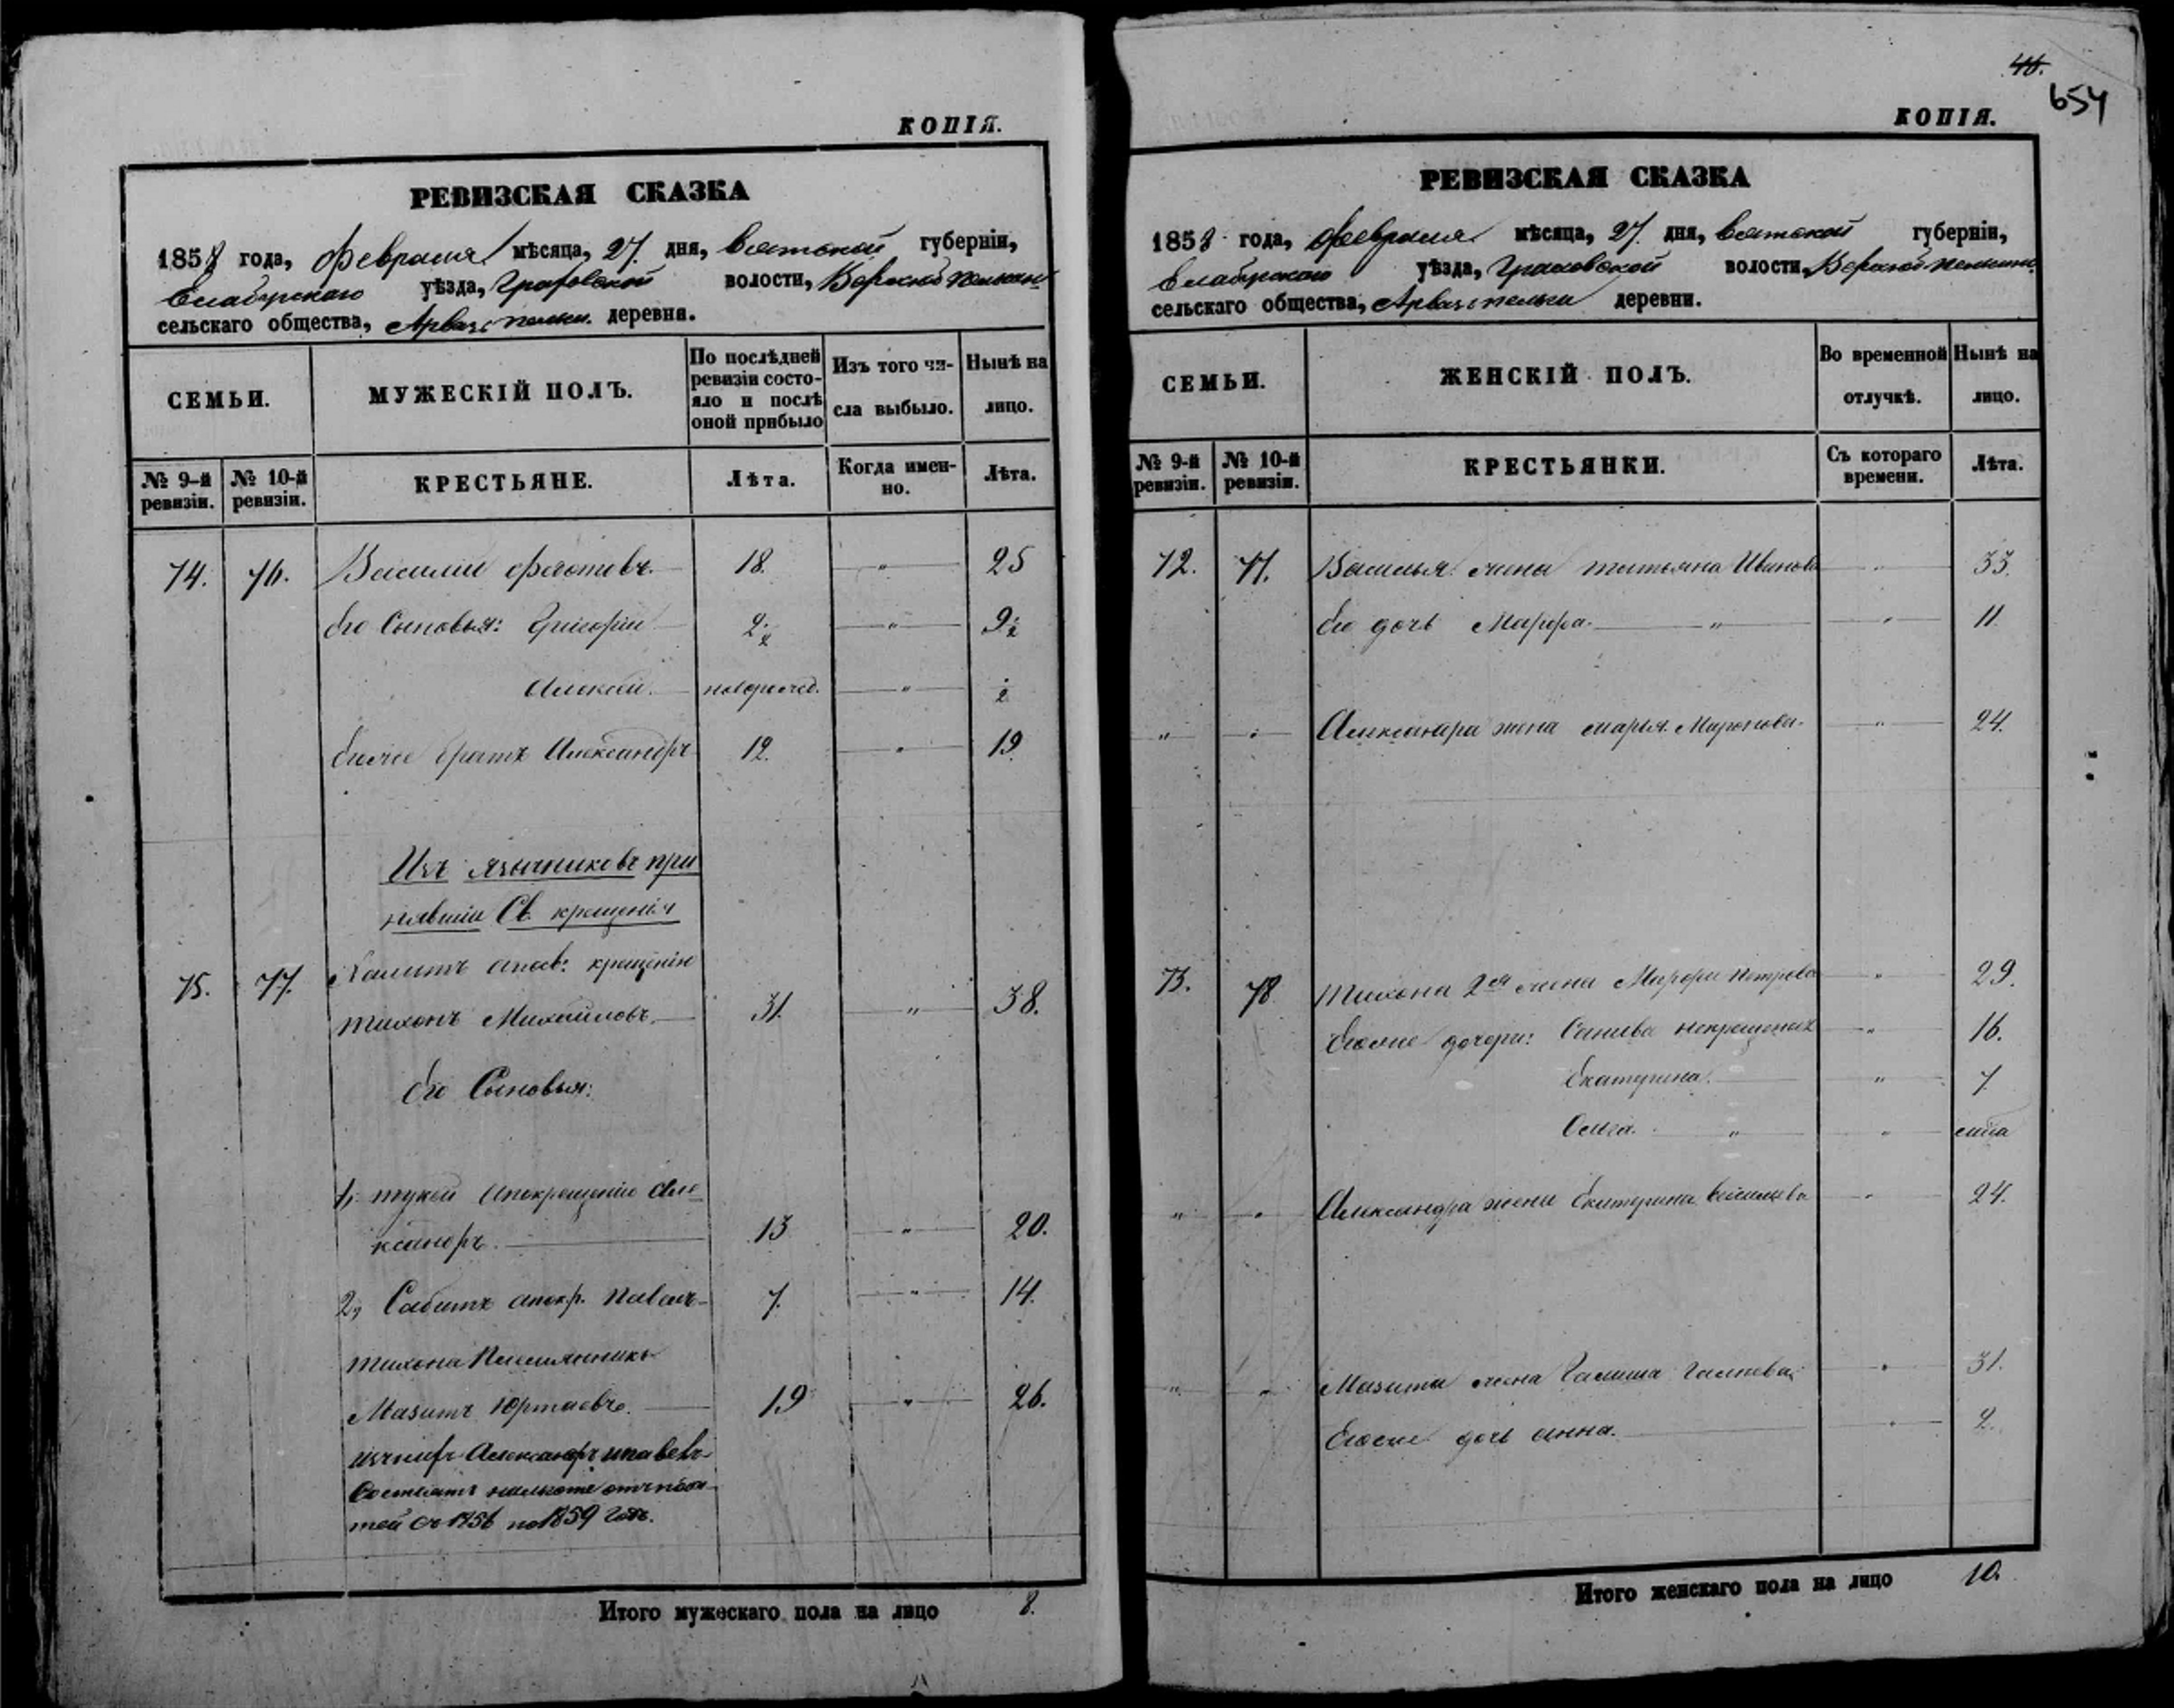 КОПІЯ.
РЕВИЗСКАЯ СКАЗКА
1858 года, Февраля мѣсяца, 27. дня, Вятской губерніи,
Елабужскаго уѣзда, Граховской волости,
сельскаго общества, деревни.
СЕМЬИ.
МУЖЕСКІЙ ПОЛЪ.
По послѣдней ревизіи состояло и послѣ оной прибыло
Изъ того числа выбыло.
Нынѣ на лицо.
№ 9-й ревизіи.
№ 10-й ревизіи.
КРЕСТЬЯНЕ.
Лѣта.
Когда именно.
Лѣта.
74. 76. Василій Федотовъ. 18. " 25
Его Сыновья: Григорій 2 ½ " 9 ½
Алексѣй. новорожд. " ½
Егоже братъ Александръ 12. " 19
Изъ язычниковъ при
нявшіи Св. крещенія
75. 77. апосв: крещенію
Тихонъ Михайловъ. 31. " 38.
Его Сыновья:
1, апокрещенію Але
ксандръ. 13 " 20.
2, Сабитъ апокр. Павелъ 7. " 14.
Тихона Племянникъ
Мазитъ Юртаевъ. 19 " 26.
изънихъ Александръ ипавелъ
Состоятъ нальготе отъпода
тей съ 1856 по 1859 годъ.
Итого мужескаго пола на лицо 8.
46.
654
КОПІЯ.
РЕВИЗСКАЯ СКАЗКА
1858 года, Февраля мѣсяца, 27. дня, Вятской губерніи,
Елабужскаго уѣзда, Граховской волости,
сельскаго общества, деревни.
СЕМЬИ.
ЖЕНСКІЙ ПОЛЪ.
Во временной отлучкѣ.
Нынѣ на лицо.
№ 9-й ревизіи.
№ 10-й ревизіи.
КРЕСТЬЯНКИ.
Съ котораго времени.
Лѣта.
72. 77. Василья жена Татьяна Иванова " 33.
Его дочь Марфа. " " 11
" " Александра жена Марья Миронова " 24.
73. 78 Тихона 2я жена Марфа Петрова " 29.
Егоже дочери: некрещеная " 16.
Екатерина. " 7
Ольга. " "
" " Александра жена Екатерина Васильева " 24.
" " Мазита жена Галиева " 31.
Егоже дочь Анна. " 2.
Итого женскаго пола на лицо 10.